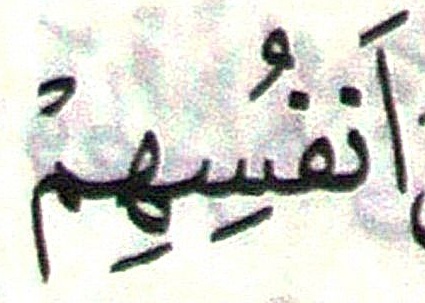 اَنفُسِهِمْ